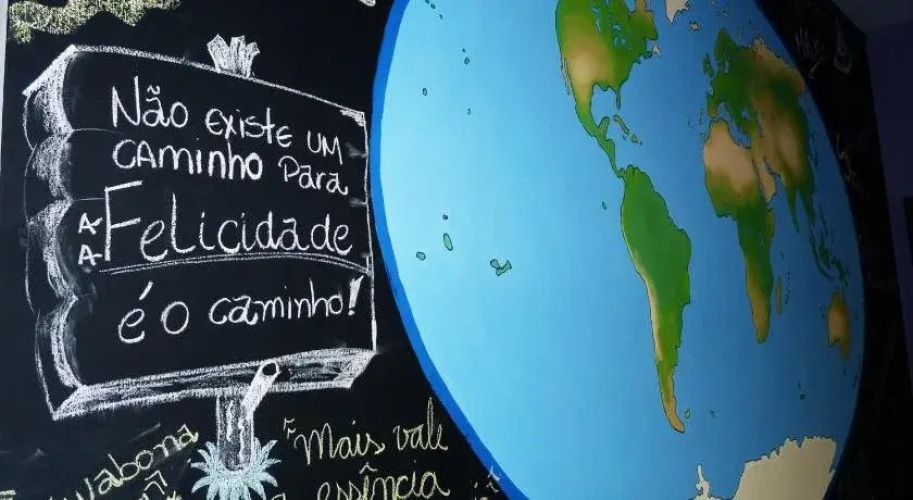 Não existe um
caminho para
A Felicidade
A
é o caminho!
Mais vale
a essência